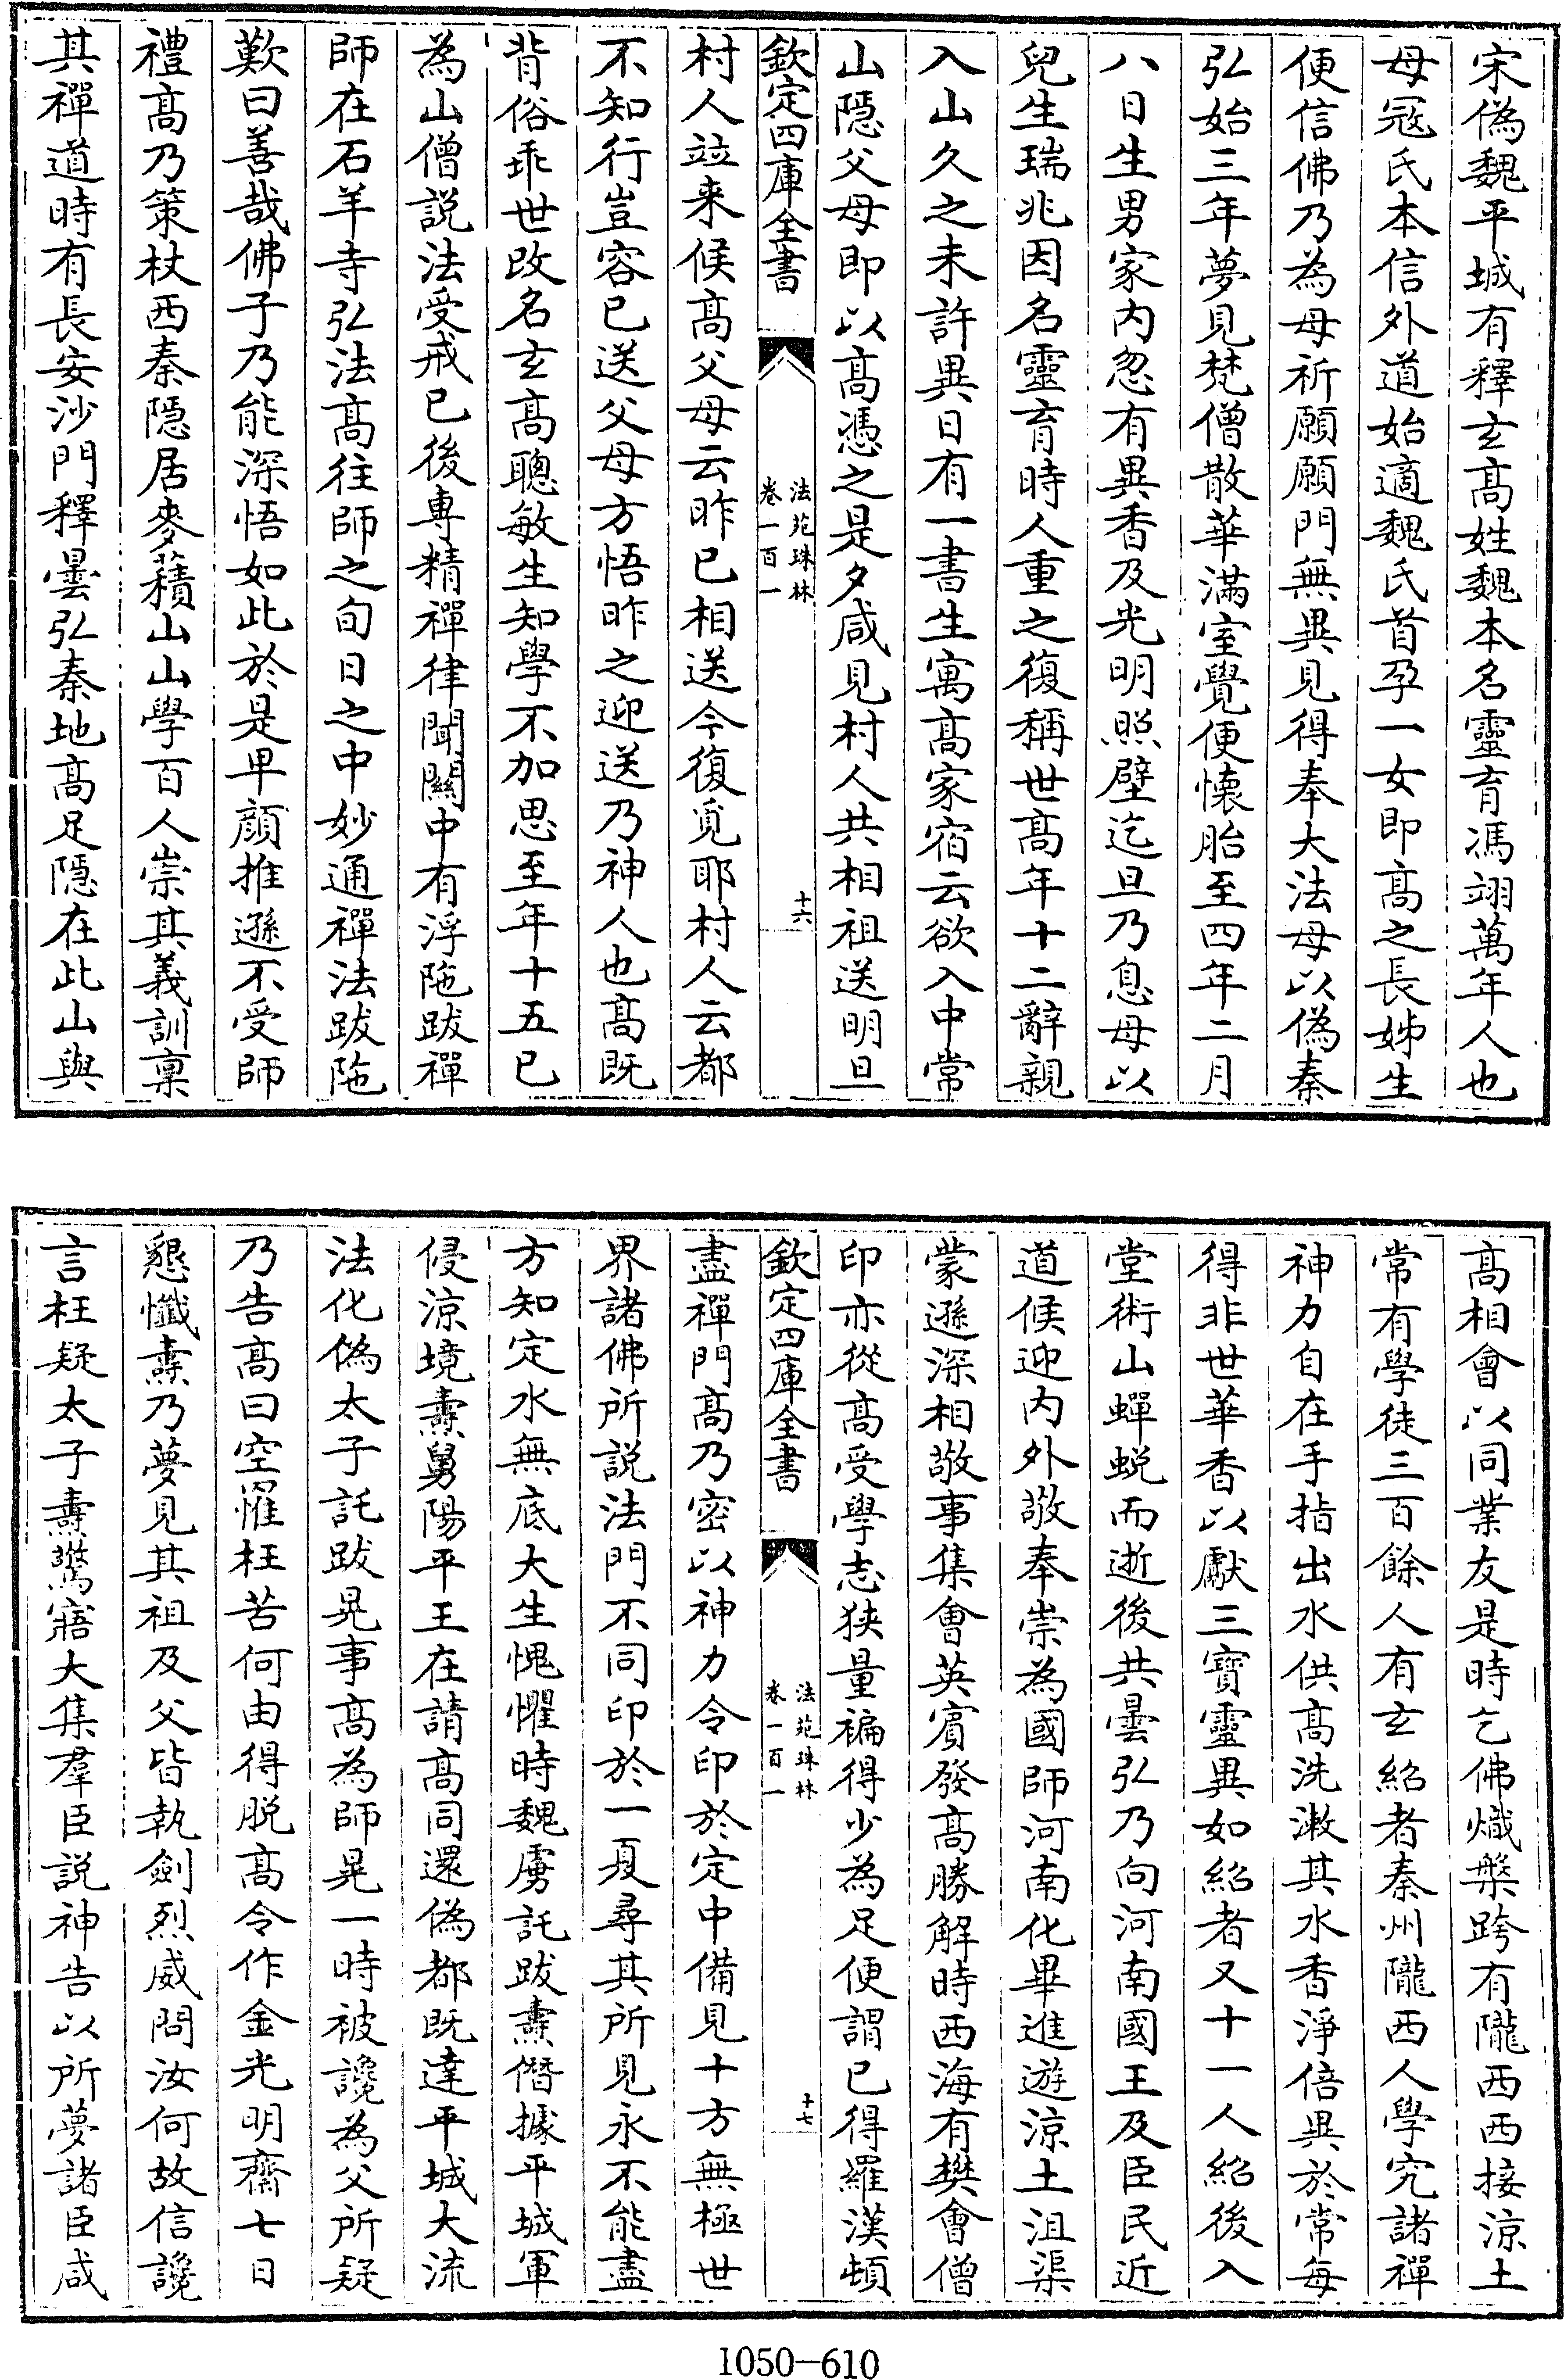 宋偽魏平城有釋玄髙姓魏本名靈育馮翊萬年人也
母冦氏本信外道始適魏氏首孕一女即髙之長姊生
便信佛乃為母祈願願門無異見得奉大法母以偽秦
弘始三年夢見梵僧散華滿室覺便懷胎至四年二月
八日生男家内忽有異香及光明照壁迄旦乃息母以
兒生瑞兆因名靈育時人重之復稱世髙年十二辭親
入山久之未許異日有一書生寓髙家宿云欲入中常
山隱父母即以髙憑之是夕咸見村人共相祖送明旦
欽定四庫全書
法苑珠林
卷一百一
十六
村人竝来候髙父母云昨已相送今復覓耶村人云都
不知行豈容已送父母方悟昨之迎送乃神人也髙既
背俗乖世改名玄髙聰敏生知學不加思至年十五已
為山僧説法受戒已後專精禪律聞關中有浮陁跋禪
師在石羊寺弘法髙往師之旬日之中妙通禪法跋陁
歎曰善哉佛子乃能深悟如此於是卑顔推遜不受師
禮髙乃策杖西秦隱居麥積山山學百人崇其義訓稟
其禪道時有長安沙門釋曇弘秦地髙足隱在此山與
髙相會以同業友是時乞佛熾槃跨有隴西西接涼土
常有學徒三百餘人有玄紹者秦州隴西人學究諸禪
神力自在手指出水供髙洗漱其水香淨倍異於常每
得非世華香以獻三寶靈異如紹者又十一人紹後入
堂術山蟬蜕而逝後共曇弘乃向河南國王及臣民近
道候迎内外敬奉崇為國師河南化畢進遊涼土沮渠
蒙遜深相敬事集會英賓發髙勝解時西海有樊會僧
印亦從髙受學志狹量褊得少為足便謂已得羅漢頓
欽定四庫全書
法苑珠林
卷一百一
十七
盡禪門髙乃密以神力令印於定中備見十方無極世
界諸佛所説法門不同印於一夏尋其所見永不能盡
方知定水無底大生愧懼時魏虜託跋燾僭據平城軍
侵涼境燾舅陽平王在請髙同還偽都既達平城大流
法化偽太子託跋晃事髙為師晃一時被讒為父所疑
乃告髙曰空罹枉苦何由得脱髙令作金光明齋七日
懇懺燾乃夢見其祖及父皆執劍烈威問汝何故信讒
言枉疑太子燾驚寤大集羣臣説神告以所夢諸臣咸
1050-610